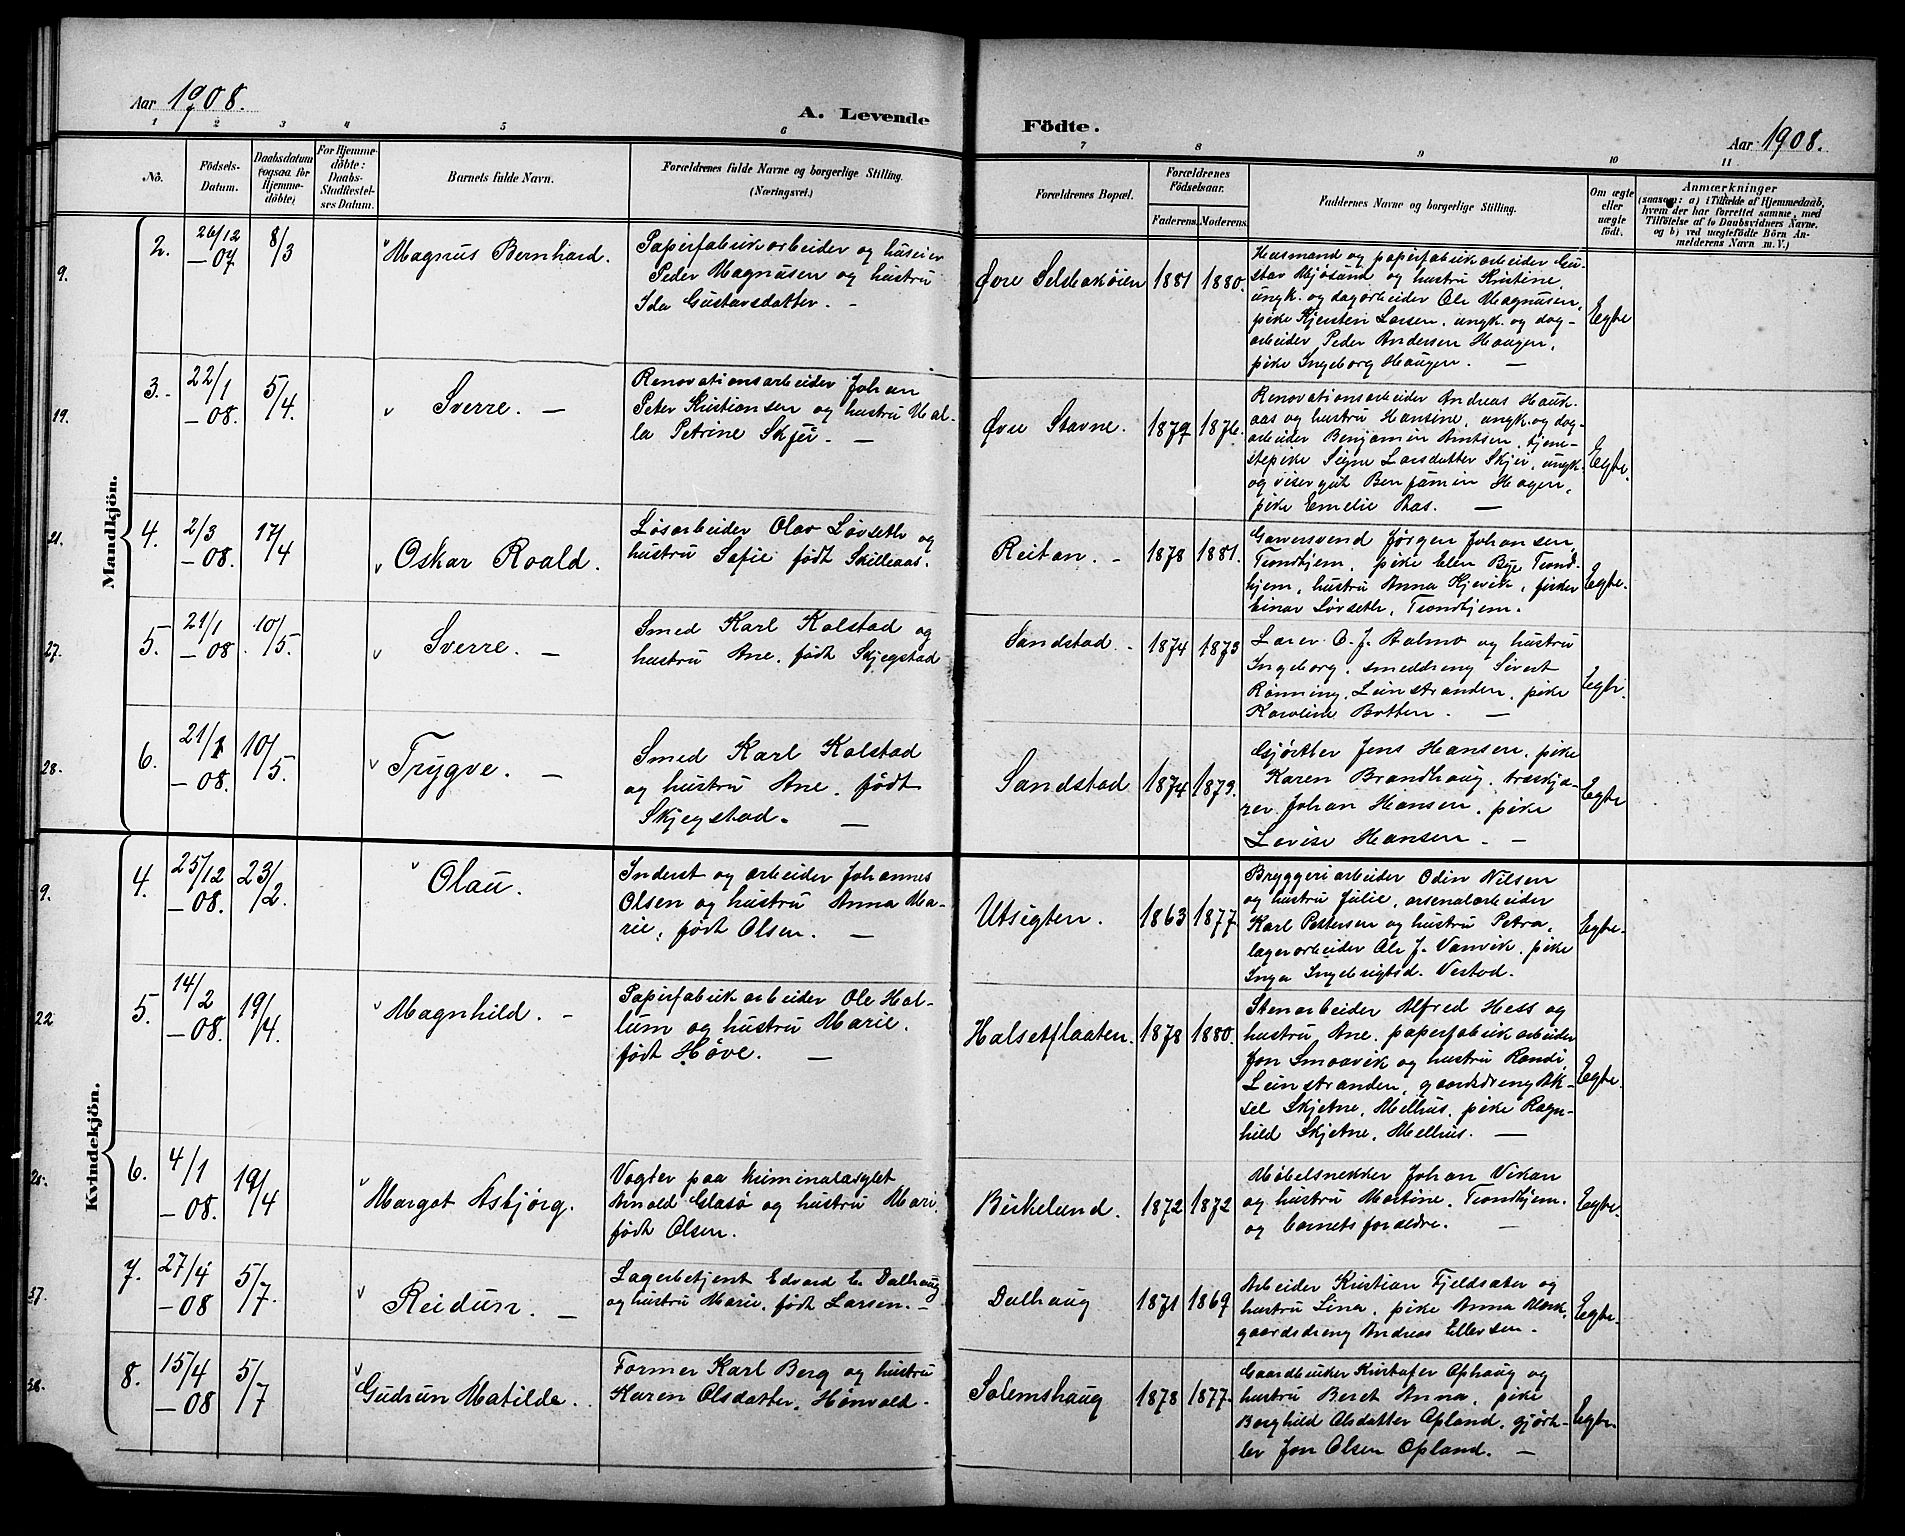 Aar 1908.
A. Levende
Födte.
Aar 1908.
1 2 3 4 5 6 7 8 9 10 11
No.
Födsels-
Datum.
Daabsdatum
(ogsaa for
Hjemme-
döbte)
For Hjemme-
döbte:
Daabs-
Stadfæstel-
ses Datum.
Barnets fulde Navn.
Forældrenes fulde Navne og borgerlige Stilling.
(Næringsvei.)
Forældrenes Bopæl.
Forældrenes
Födselsaar.
Faderens. Moderens.
Faddernes Navne og borgerlige Stilling.
Om ægte
eller
uægte
födt.
Anmærkninger
(saasom: a) i Tilfælde af Hjemmedaab,
hvem der har forrettet samme, med
Tilföielse af to Daabsvidners Navne.
og b) ved uægtefödte Börn An-
melderens Navn m. V.)
Mandkjön.
9.
2.
26/12
-07
8/3
Magnus Bernhard.
Papirfabrikarbeider og huseier
Peder Magnusen og hustru
Ida Gustavsdatter. -
Øvre Selsbakøien
1881
1880.
Husmand og papirfabrikarbeider Gu-
stav Mjøsund og hustru Kristine,
ungk. og dagarbeider Ole Magnusen,
pike Kjersten Larsen, ungk. og dag-
arbeider Peder Andersen Haugen,
pike Ingeborg Haugen. -
Egte
19.
3.
22/1
-08.
5/4.
Sverre. -
Renovationsarbeider Johan
Peter Kristiansen og hustru Mal-
la Petrine Skjei. -
Øvre Stavne.
1879
1876.
Renovationsarbeider Andreas Hauk-
aas og hustru Hansine, ungk. og dag-
arbeider Benjamin Arntsen, tjene-
stepike Signe Larsdatter Skjei, ungk.
og visergut Benjamin Hagen,
pike Emelie Aas. -
Egte.
21.
4.
2/3
-08.
17/4
Oskar Roald.
Løsarbeider Olav Løvseth og
hustru Sofie født Skilleaas.
Reitan. -
1878
1881.
Garversvend Jørgen Johansen,
Trondhjem, pike Elen Bye Trond-
hjem, hustru Anna Kjevik, fisker
Einar Løvseth, Trondhjem.
Egte.
27.
5.
21/1
-08.
10/5.
Sverre. -
Smed Karl Kolstad og
hustru Ane, født Skjegstad
Sandstad. -
1874
1873
Lærer O. J. Aalmo og hustru
Ingeborg, smeddreng Sivert
Rønning, Leinstranden, pike
Karoline Botten. -
Egte.
28.
6.
21/1
-08.
10/5.
Trygve. -
Smed Karl Kolstad
og hustru Ane, født
Skjegstad. -
Sandstad
1874
1873.
Gjørtler Jens Hansen, pike
Karen Brandhaug, træskjæ-
rer Johan Hansen, pike
Lovise Hansen. -
Egte
Kvindekjön.
9.
4.
25/12
-08.
23/2.
Olau.
Inderst og arbeider Johannes
Olsen og hustru Anna Ma-
rie, født Olsen. -
Utsigten.
1863
1877.
Bryggeriarbeider Odin Nilsen
og hustru Julie, arsenalarbeider
Karl Pettersen og hustru Petra,
lagerarbeider Ole J. Vanvik, pike
Inga Ingebrigtsd. Vestad.
Egte.
22
5.
14/2
-08.
19/4.
Magnhild. -
Papirfabrikarbeider Ole Hal-
lum og hustru Marie,
født Høve. -
Halsetflaaten.
1878
1880.
Stenarbeider Alfred Hess og
hustru Ane, papirfabrikarbeider
Jon Smaavik og hustru Randi,
Leinstranden, gaardsdreng Ak-
sel Skjetne, Melhus, pike Ragn-
hild Skjetne, Melhus. -
Egte.
25.
6.
4/1
-08.
19/4
Margot Asbjørg.
Vogter paa kriminalasylet
Arnold Glasø og hustru Mari,
født Olsen.
Birkelund.
1872
1872
Møbelsnekker Johan Vikan
og hustru Martine, Trondhjem.
og barnets forældre. -
Egte.
37.
7.
27/4
-08
5/7.
Reidun. -
Lagerbetjent Edvard E. Dalhaug
og hustru Marie, født Larsen. -
Dalhaug
1871
1869
Arbeider Kristian Fjeldsæter og
hustru Lina, pike Anna Mørk,
gaardsdreng Andreas Ellevsen. -
Egte.
38.
8.
15/4
-08
5/7
Gudrun Matilde.
Former Karl Berg og hustru
Karen Olsdatter, Hønvold.
Solemshaug
1878
1877.
Gaardbruker Kristofer Ophaug og
hustru Beret Anna, pike
Borghild Olsdatter Opland, gjørt-
ler Jon Olsen Opland. -
Egte.